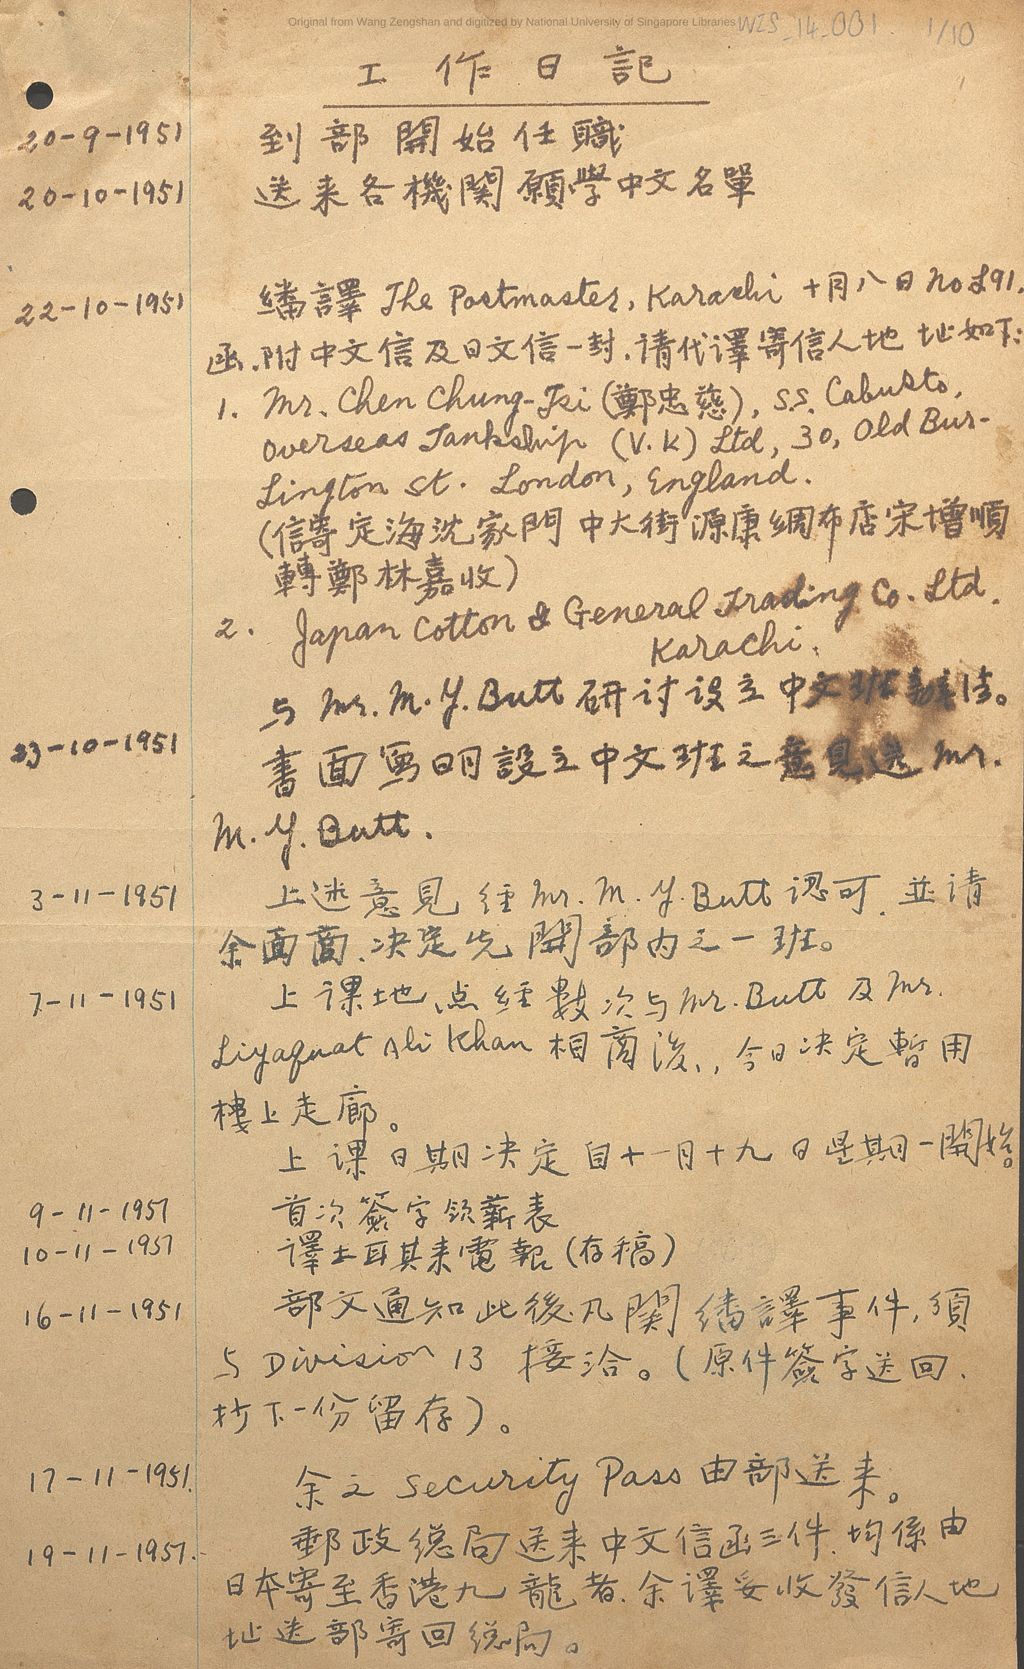 Original from Wang Zengshan and digitized by National University of Singapore Libraries
WZS_14_001 1/10
工作日記
20-9-1951 到部開始任職
20-10-1951 送来各機関願學中文名單
22-10-1951 繙譯 The Postmaster, Karachi 十月八日 No L91.
函.附中文信及日文信一封.请代譯寄信人地址如下:
1. Mr. Chen Chung-Tsi (鄭忠慈), S.S. Cabusto,
Overseas Tankship (V.K) Ltd, 30, Old Bur-
lington St. London, England.
(信寄定海沈家門中大街源康綢布店宋增順
轉鄭林嘉收)
2. Japan Cotton & General Trading Co. Ltd.
Karachi.
与 Mr. M. Y. Butt 研讨设立中文班办法。
23-10-1951 書面寫明設立中文班之意見送 Mr.
M. Y. Butt.
3-11-1951 上述意見経 Mr. M. Y. Butt 認可.並请
余面商.决定先開部内之一班。
7-11-1951 上课地点経數次与 Mr. Butt 及 Mr.
Liyaquat Ali Khan 相商後,.今日决定暫用
樓上走廊。
上课日期决定自十一月十九日星期一開始。
9-11-1951 首次簽字領薪表
10-11-1951 譯土耳其来電報(存稿)
16-11-1951 部文通知此後凡関繙譯事件,須
与 Division 13 接洽。(原件簽字送回.
抄下一份留存)。
17-11-1951. 余之 Security Pass 由部送来。
19-11-1951. 郵政総局送来中文信函三件.均係由
日本寄至香港九龍者.余譯妥收發信人地
址送部寄回総局。